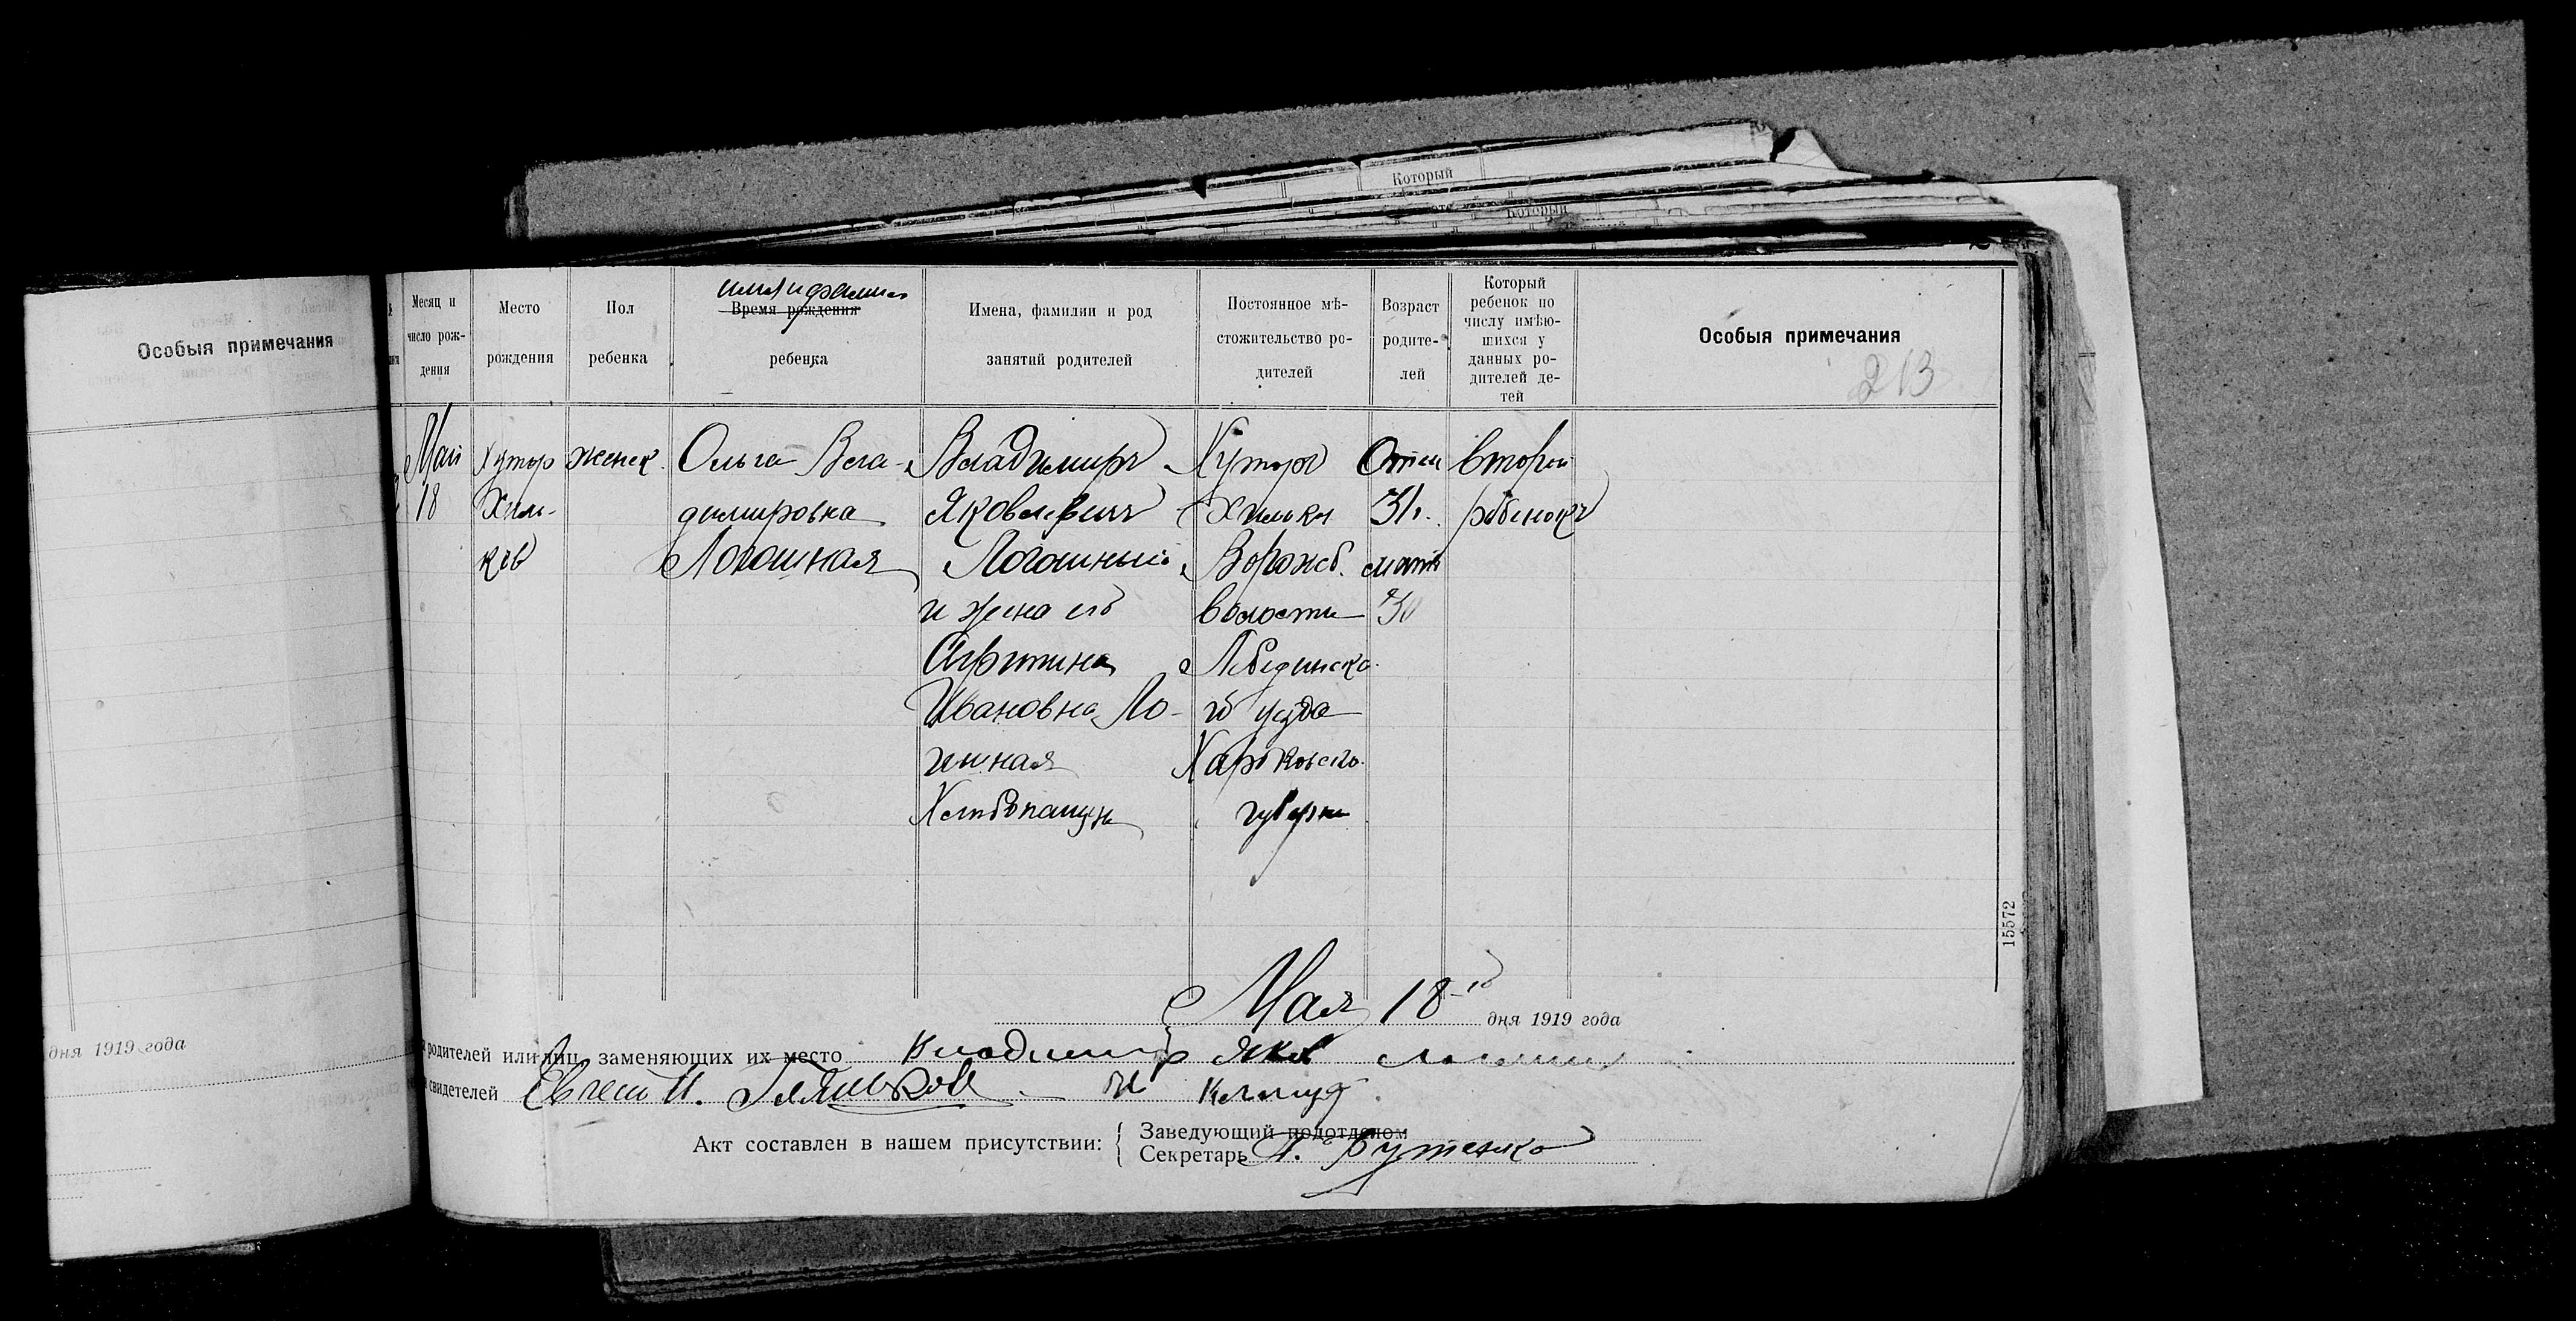 Который
Который
Особыя примечания
дня 1919 года
Месяц и число рож-дения
Место рождения
Пол ребенка
имя и фамилия
Время рождения ребенка
Имена, фамилии и род занятий родителей
Постоянное мѣ-стожительство ро-дителей
Возраст родите-лей
Который ребенок по числу имѣю-шихся у данных ро-дителей де-тей
Особыя примечания
213
Май
18
Хутор
Хиль-
ков
женск.
Ольга Вла-
димировна
Логошная
Владимиръ
Яковлевичъ
Логошный
и жена его
Ивановна Ло-
гишная
Хуторъ
Хильки
Ворожб.
волости
Лебединска-
го уезда
Харьковско.
губерни
Отец
31.
мать
30
второй
ребенокъ
15572
Мая 18-го дня 1919 года
родителей или лиц, заменяющих их место
свидетелей
Акт составлен в нашем присутствии:
Заведующий подотделом
Секретарь А. Бутенко